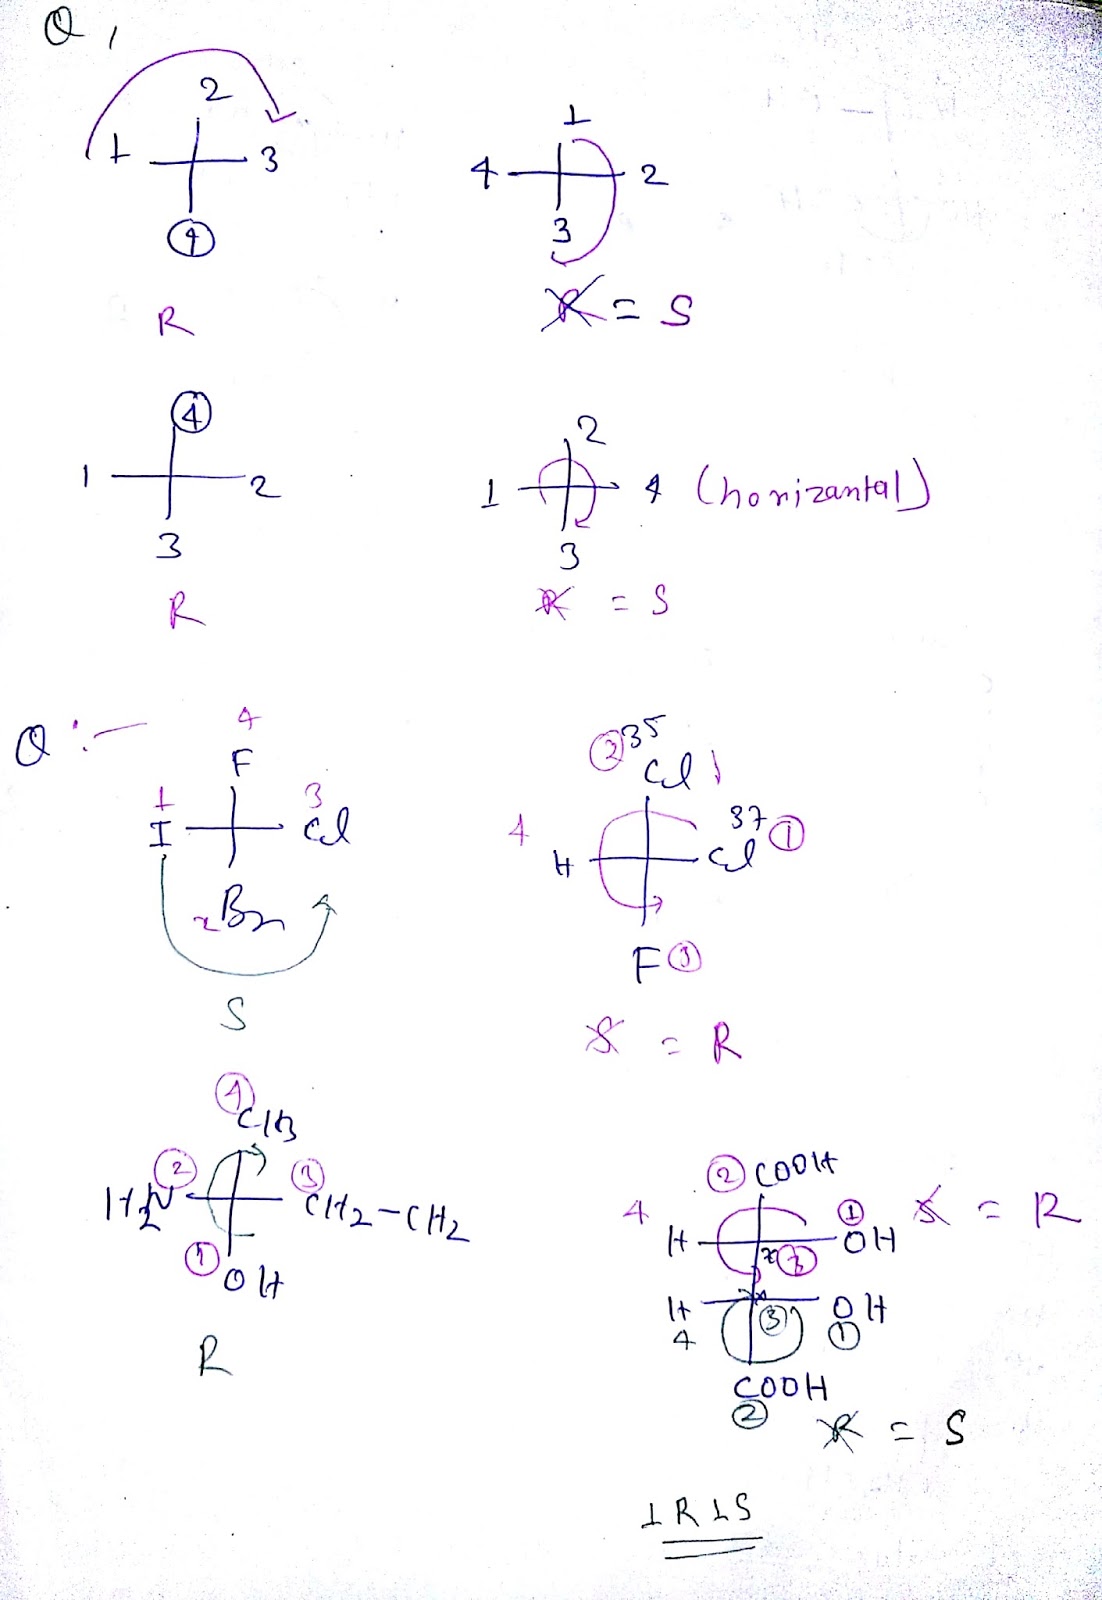 Q,
2
1 3
4
R
1
4 2
3
R = S
4
1 2
3
R
2
1 4 (horizantal)
3
R = S
Q:-
4
F
1 3
I Cl
2 Br
S
2 35
Cl
4 37
H Cl 1
F 3
S = R
4
CH3
2 3
H2N CH2-CH2
1 OH
R
2 COOH
4 1
H OH S = R
3
H 3 OH
4 1
COOH
2
R = S
1R1S